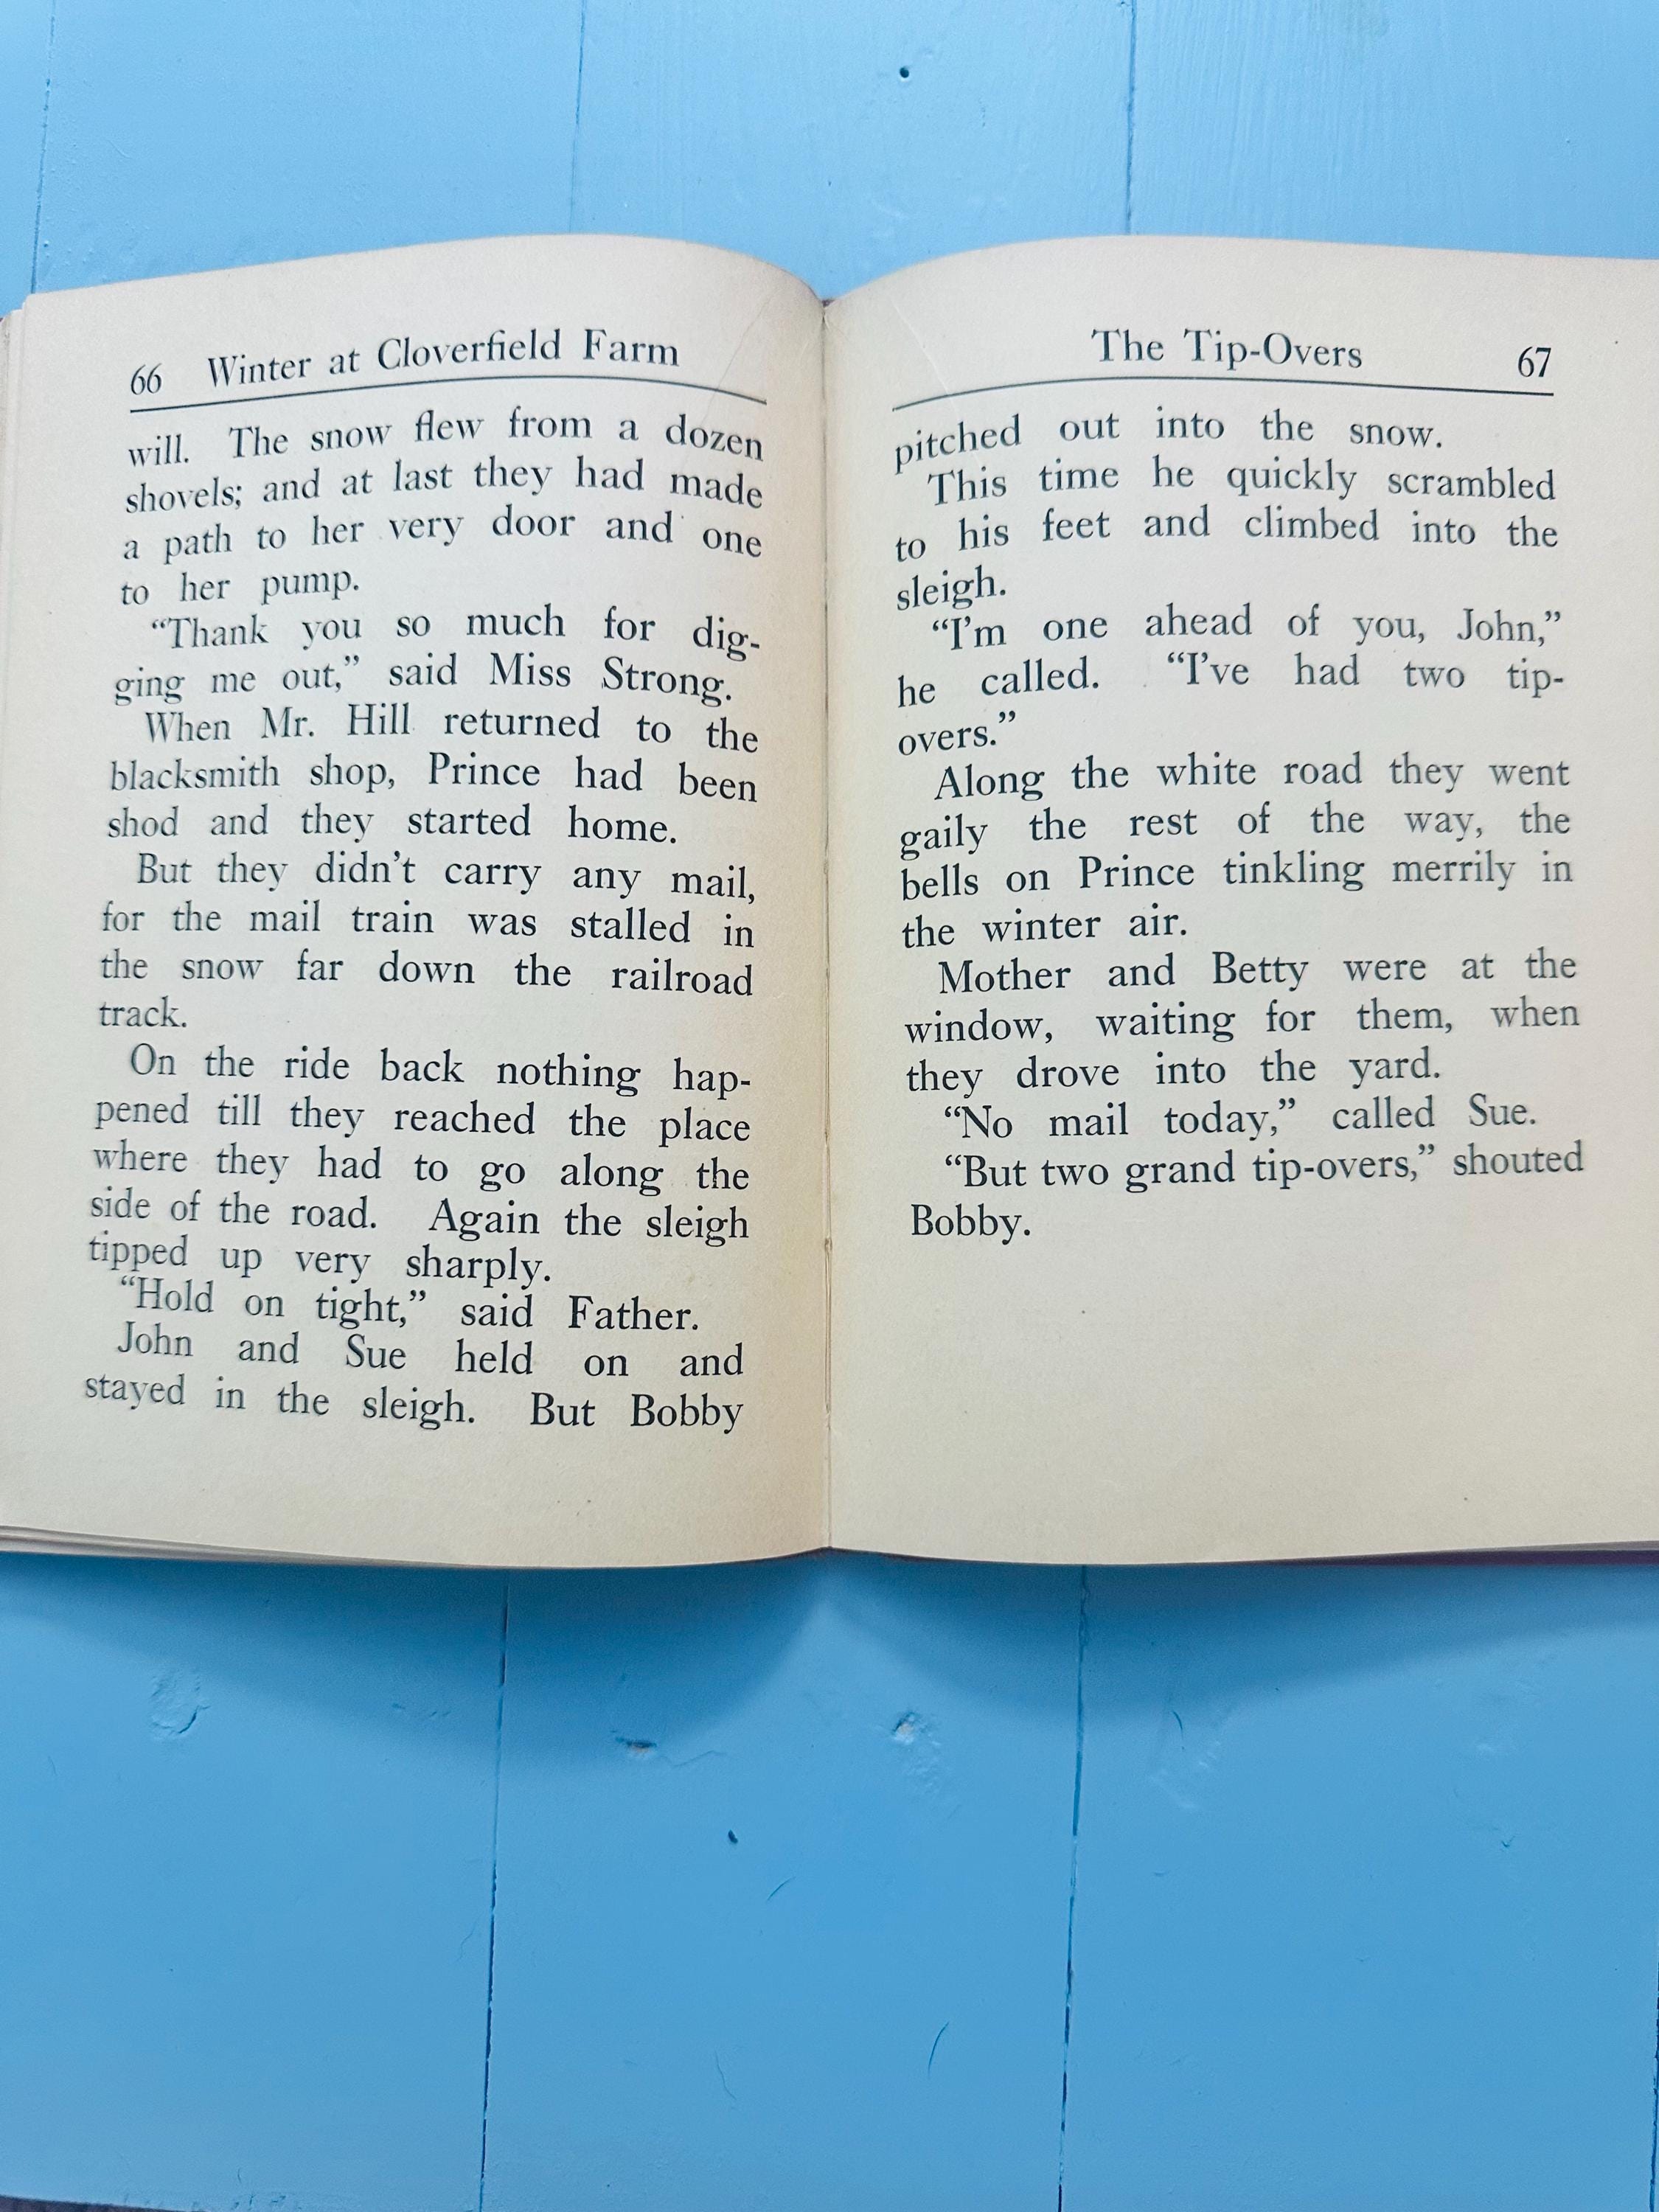 66 Winter at Cloverfield Farm
will. The snow flew from a dozen
shovels; and at last they had made
a path to her very door and one
to her pump.
“Thank you so much for dig-
ging me out,” said Miss Strong.
When Mr. Hill returned to the
blacksmith shop, Prince had been
shod and they started home.
But they didn’t carry any mail,
for the mail train was stalled in
the snow far down the railroad
track.
On the ride back nothing hap-
pened till they reached the place
where they had to go along the
side of the road. Again the sleigh
tipped up very sharply.
“Hold on tight,” said Father.
John and Sue held on and
stayed in the sleigh. But Bobby
The Tip-Overs 67
pitched out into the snow.
This time he quickly scrambled
to his feet and climbed into the
sleigh.
“I’m one ahead of you, John,”
he called. “I’ve had two tip-
overs.”
Along the white road they went
gaily the rest of the way, the
bells on Prince tinkling merrily in
the winter air.
Mother and Betty were at the
window, waiting for them, when
they drove into the yard.
“No mail today,” called Sue.
“But two grand tip-overs,” shouted
Bobby.